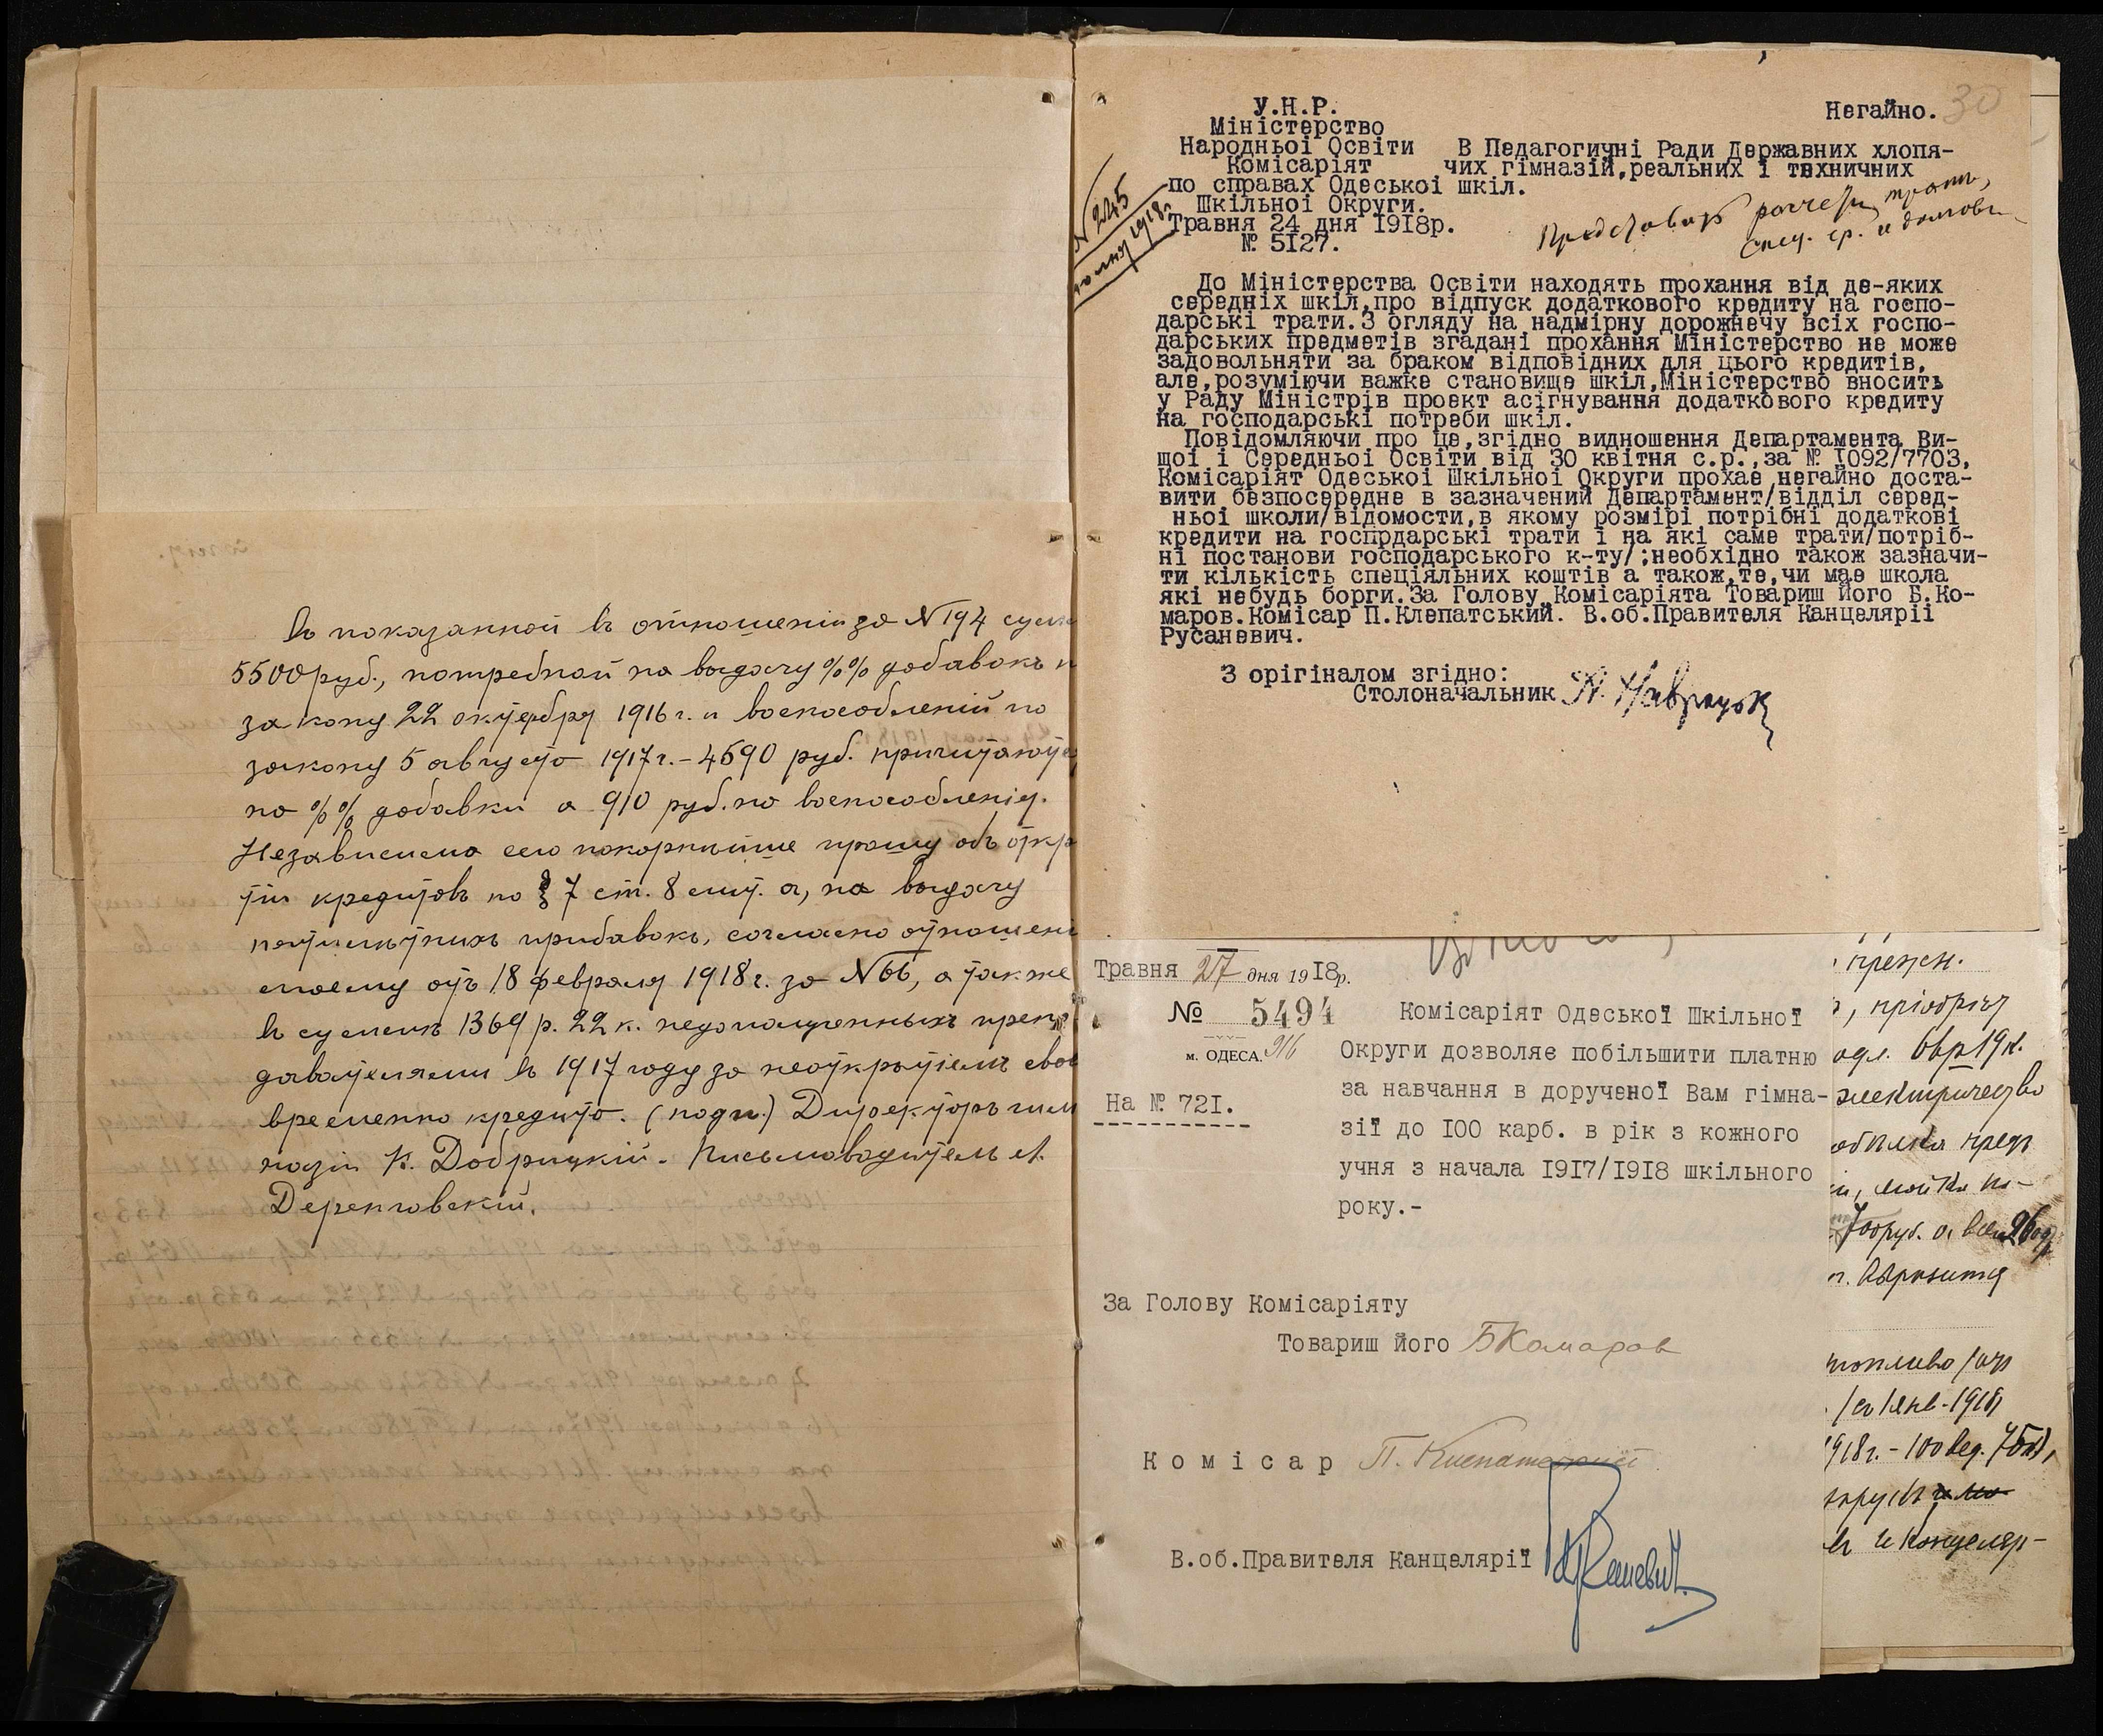 Въ показанной въ отношеніи за N 194 сумм
5500 руб., потребной на выдачу %% добавокъ п
закону 22 октября 1916 г. и воспособленій по
закону 5 августа 1917 г. – 4590 руб. причитаютс
на %% добавки а 910 руб. на воспособленія.
Независимо сего покорнѣйше прошу объ откр
тіи кредитовъ по § 7 ст. 8 лит. а, на выдачу
пятилѣтнихъ прибавокъ, согласно отношені
моему отъ 18 февраля 1918 г. за N 66, а также
въ суммѣ 1369 р. 22 к. недополученныхъ преп
давателями въ 1917 году за неоткрытіемъ свое
временно кредита. (подп.) Директоръ гим
назіи К. Добрицкій. Письмоводитель
Деренговскій.
У.Н.Р.
Міністерство
Народньоі Освіти
Комісаріят
по справах Одеськоі
Шкільноі Округи.
Травня 24 дня 1918р.
№ 5127.
N 245
1918г.
Негайно. 30
В Педагогичні Ради Державних хлопя-
чих гімназій,реальних і технничних
шкіл.
Представить
спец. ср. и
До Міністерства Освіти находять прохання від де-яких
середніх шкіл,про відпуск додаткового кредиту на госпо-
дарські трати.З огляду на надмірну дорожнечу всіх госпо-
дарських предметів згадані прохання Міністерство не може
задовольняти за браком відповідних для цього кредитів,
але,розуміючи важке становище шкіл,Міністерство вносить
у Раду Міністрів проект асігнування додаткового кредиту
на господарські потреби шкіл.
Повідомляючи про це,згідно видношення Департамента Ви-
щоі і Середньоі Освіти від 30 квітня с.р.,за № 1092/7703,
Комісаріят Одеськоі Шкільноі Округи прохає негайно доста-
вити безпосередне в зазначений Департамент/відділ серед-
ньоі школи/відомости,в якому розмірі потрібні додаткові
кредити на госпрдарські трати і на які саме трати/потріб-
ні постанови господарського к-ту/;необхідно також зазначи-
ти кількість спеціяльних коштів а також,те,чи має школа
які небудь борги.За Голову Комісаріята Товариш Його Б.Ко-
маров.Комісар П.Клепатський. В.об.Правителя Канцеляріі
Русаневич.
З орігіналом згідно:
Столоначальник
Травня 27 дня 1918р.
№ 5494
м. ОДЕСА. 916
На № 721.
Комісаріят Одеської Шкільної
Округи дозволяє побільшити платню
за навчання в дорученої Вам гімна-
зії до 100 карб. в рік з кожного
учня з начала 1917/1918 шкільного
року.-
За Голову Комісаріяту
Товариш його БКомаров
Комісар П. Клепатський
В.об.Правителя Канцелярії
электричество
топливо
1918г. – 100 вед.